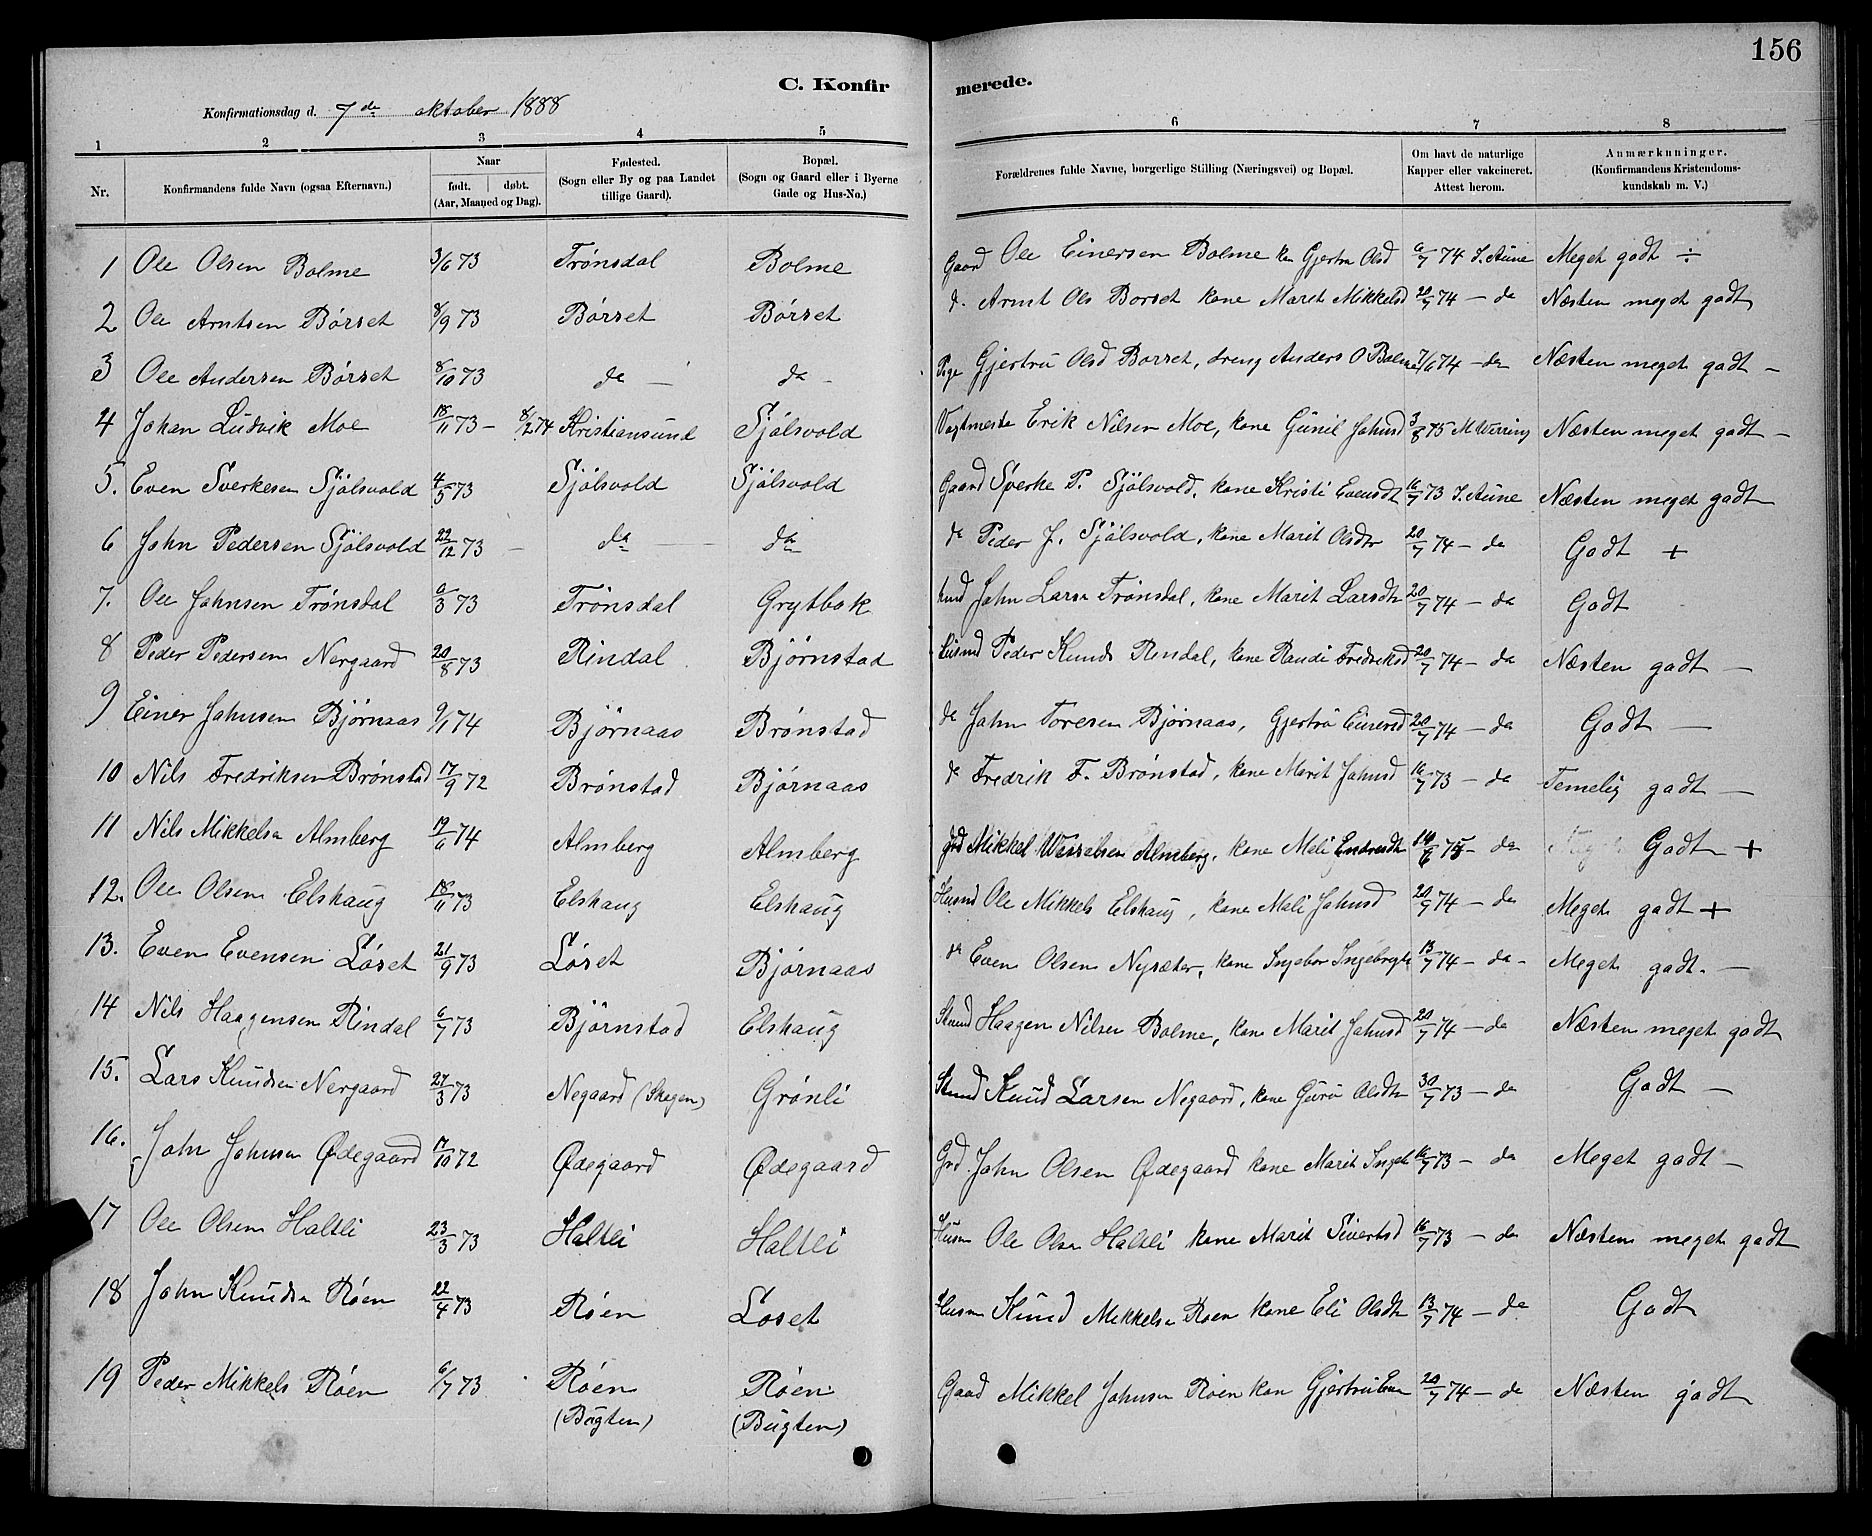 156
C. Konfirmerede.
Konfirmationsdag d. 7de oktober 1888
1 2 3 4 5 6 7 8
Nr. Konfirmandens fulde Navn (ogsaa Efternavn.) Naar født. døbt. (Aar, Maaned og Dag). Fødested. (Sogn eller By og paa Landet tillige Gaard). Bopæl. (Sogn og Gaard eller i Byerne Gade og Hus-No.) Forældrenes fulde Navne, borgerlige Stilling (Næringsvei) og Bopæl. Om havt de naturlige Kapper eller vakcineret. Attest herom. Anmærkninger. (Konfirmandens Kristendomskundskab m. V.)
1 Ole Olsen Bolme 3/6 73 Trönsdal Bolme Gaard Ole Einersen Bolme kon Gjertru Olsd 74 I. Aune Meget godt ÷
2 Ole Arntsen Börset 8/9 73 Börset Börset d. Arnt Ols Borset kone Marit Mikkelsd 20/7 74 — do Næsten meget godt
3 Ole Andersen Börset 8/10 73 do — do - Pige Gjertru Olsd Borset, dreng Anders O Bolme 7/6 74 — do Næsten meget godt -
4 Johan Ludvik Moe 18/11 73 - 8/2 74 Kristiansund Sjölsvold Vagtmester Erik Nilsen Moe, kone Gunil Johnsd 3/8 75 M Werring Næsten meget godt -
5. Even Sverkesen Sjölsvold 4/5 73 Sjölsvold Sjölsvold Gaard Sverke P. Sjölsvold, kone Kristi Evensdt 16/7 73 I. Aune Næsten meget godt
6 John Pedersen Sjölsvold 22/12 73 - do — do do Peder J. Sjölsvold, kone Marit Olsdtr 20/7 74 — do Godt +
7. Ole Johnsen Trönsdal 6/3 73 Trönsdal Grytbak John Larsn Trönsdal, kone Marit Larsdtr 20/7 74 — do Godt
8 Peder Pedersen Nergaard 20/8 73 Rindal Bjørnstad Husmd Peder Knuds Rindal, kone Randi Fredriksd 20/7 74 — do Næsten godt —
9 Einer Johnsen Bjørnaas 9/1 74 Bjørnaas Brönstad do John Toresen Bjørnaas, Gjertru Einersd 20/7 74 — do Godt —
10 Nils Fredriksen Brönstad 17/9 72 Brönstad Bjørnaas do Fredrik F. Brönstad, kone Marit Johnsd 16/7 73 — do Temelig godt —
11 Nils Mikkelsn Almberg 19/6 74 Almberg Almberg grd Mikkel Wesselsen Almberg, kone Mali Endresdt 75 - do Godt +
12. Ole Olsen Elshaug 18/11 73 Elshaug Elshaug Husmd Ole Mikkels Elshaug, kone Mali Johnsd 20/9 74 — do Meget godt +
13. Even Evensen Löset 21/9 73 Löset Bjørnaas do Even Olsen Nysæter, kone Ingebor Ingebrgtn 13/7 74 — do - Meget godt. —
14 Nils Haagensen Rindal 6/7 73 Bjørnstad Elshaug Haagen Nilsen Bolme, kone Marit Johnsd 20/7 74 — do Næsten meget godt
15. Lars Knudsen Nergaard 27/3 73 Negaard (Skogen) Grönli Knud Larsen Negaard, kone Guru Olsdtr 30/7 73 — do Godt —
16. John Johnsen Ødegaard 17/10 72 Ødegaard Ødegaard Grd. John Olsen Ødegaard kone Marit Ingeb 16/7 73 — do Meget godt —
17 Ole Olsen Haltli 23/3 73 Haltli Haltli Husm Ole Olsn Haltli kone Marit Sivertsd 16/7 73 — do Næsten meget godt
18 John Knudsn Röen 22/4 73 Röen Löset Husm Knud Mikkelsn Roen kone Eli Olsdtr 13/7 74 — do Godt
19 Peder Mikkels Röen 6/7 73 Röen Röen Gaad Mikkel Johnsen Roen kon Gjertru 20/7 74 — do Næsten godt
(Bugten) (Bugten)